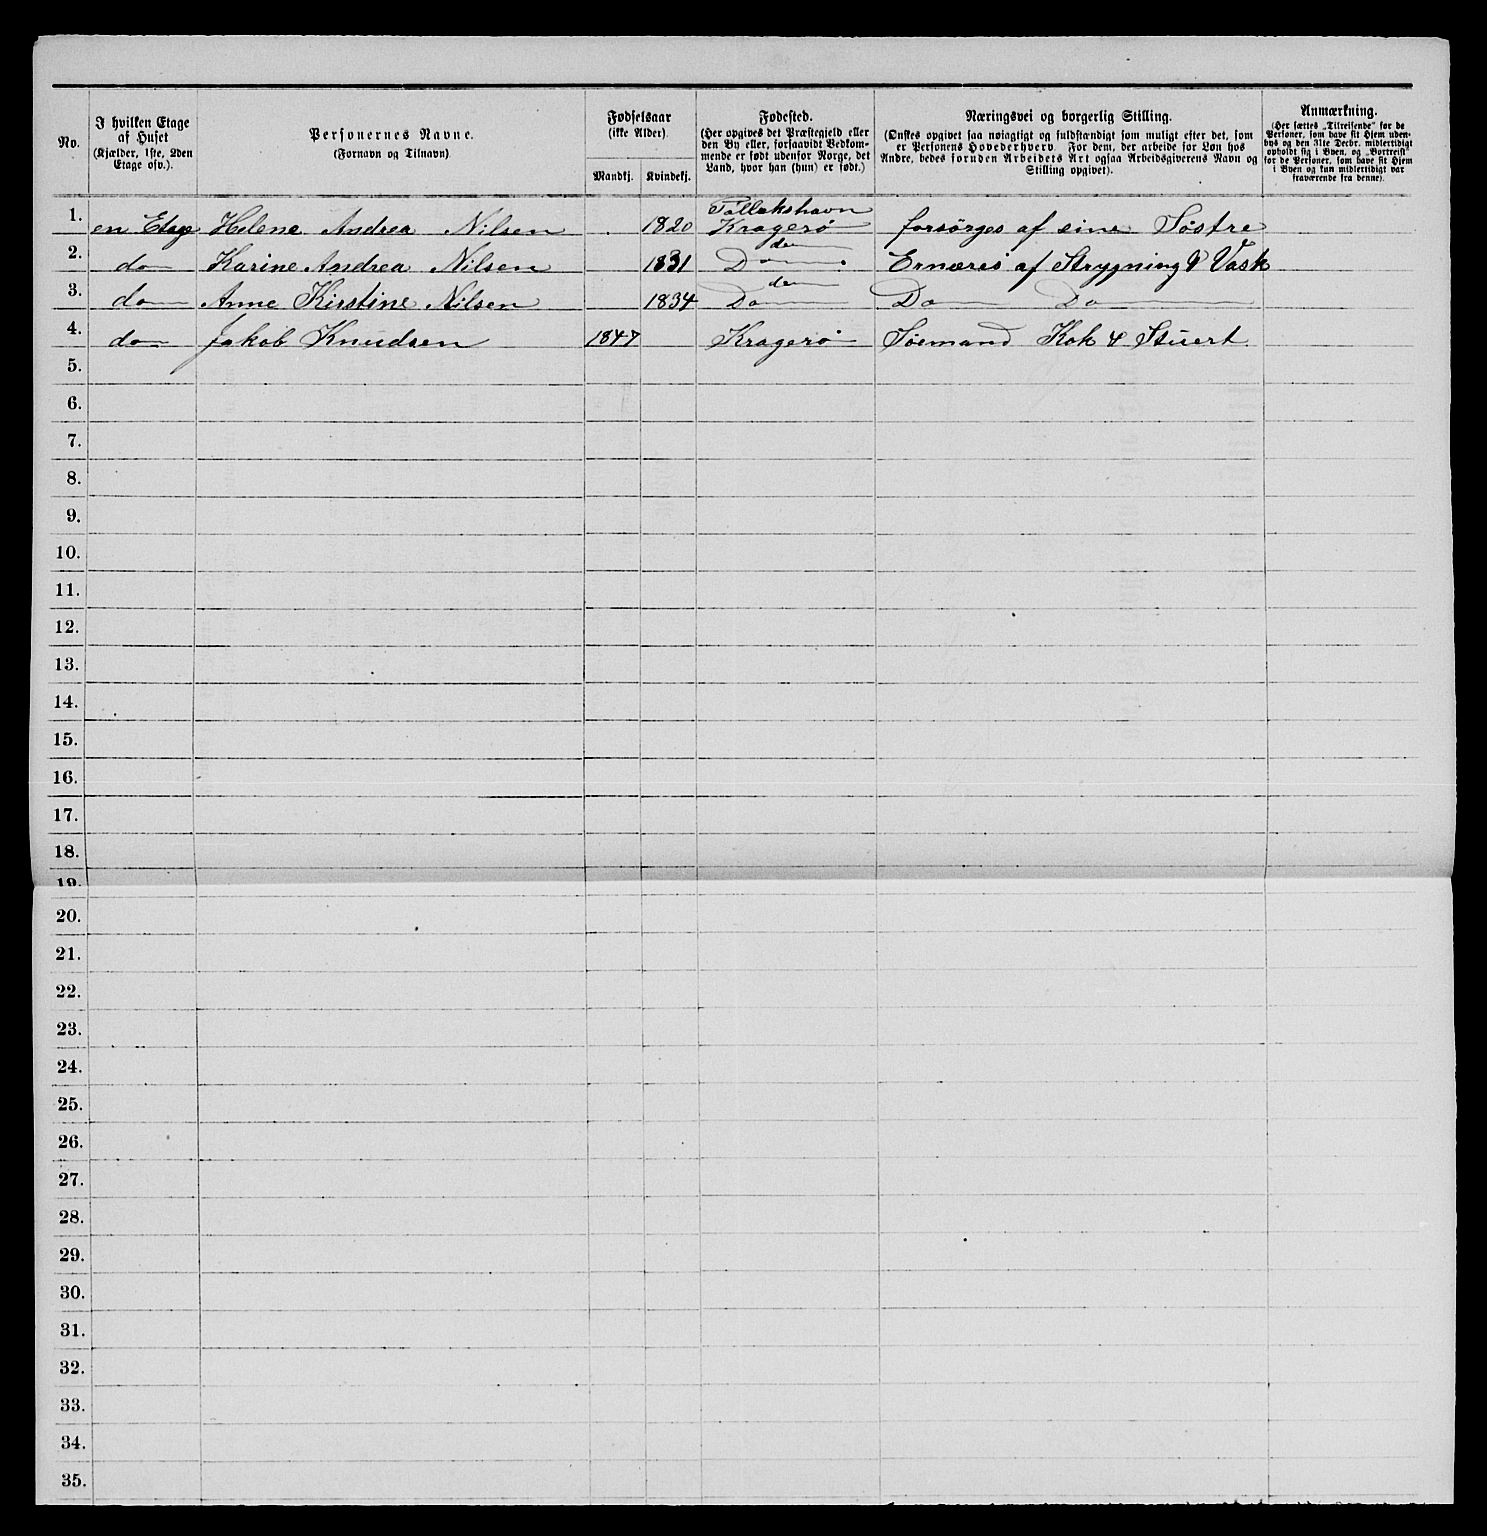 No.
I hvilken Etage af Huset (Kjælder, 1ste, 2den Etage osv.).
Personernes Navne. (Fornavn og Tilnavn)
Fødselsaar (ikke Alder).
Mandkj. Kvindekj.
Fødested. (Her opgives det Præstegjeld eller den By eller, forsaavidt Vedkommende er født udenfor Norge, det Land, hvor han (hun) er født.)
Næringsvei og borgerlig Stilling. (Ønskes opgivet saa nøiagtigt og fuldstændigt som muligt efter det, som er Personens Hovederhverv. For dem, der arbeide for Løn hos Andre, bedes foruden Arbeidets Art ogsaa Arbeidsgiverens Navn og Stilling opgivet).
Anmærkning. (Her sættes „Tilreisende" for de Personer, som have sit Hjem udenbys og den 31te Decbr. midlertidigt opholdt sig i Byen, og „Bortreist" for de Personer, som have sit Hjem i Byen og kun midlertidigt var fraværende fra denne).
1. en Etage Helene Andrea Nilsen 1820 Kragerø forsörges af sine Søstre
2. do Karine Andrea Nilsen 1831 Do Ernæres af Strygning & Vask
3. do Anne Kirstine Nilsen 1834 Do Do Do
4. do Jakob Knudsen 1847 Kragerø Søemand Kok & Stuert
5.
6.
7.
8.
9.
10.
11.
12.
13.
14.
15.
16.
17.
18.
19.
20.
21.
22.
23.
24.
25.
26.
27.
28.
29.
30.
31.
32.
33.
34.
35.